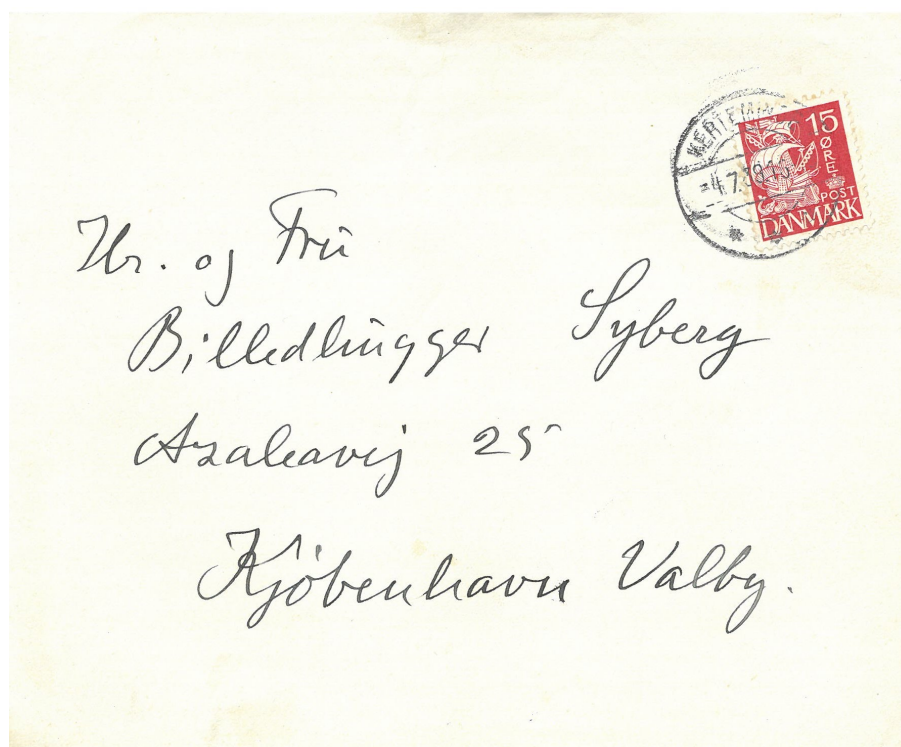 15
ØRE
POST
DANMARK
Hr. og Fru
Billedhugger Syberg
Azaleavej 25
Kjöbenhavn Valby.